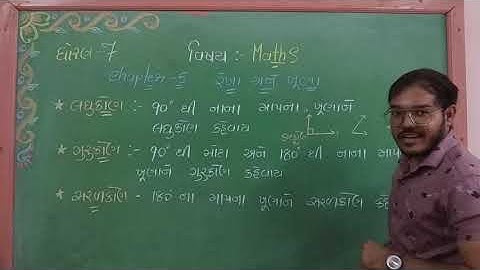 ધોરણ - 7 વિષય :- Maths
chapter - 5 રેખા અને ખૂણા
* લઘુકોણ :- ૯૦° થી નાના માપના ખૂણાને
લઘુકોણ કહેવાય
* ગુરુકોણ :- ૯૦° થી મોટા અને ૧૮૦° થી નાના માપ
ખૂણાને ગુરુકોણ કહેવાય
* સરળકોણ - ૧૮૦ ના માપના ખૂણાને સરળકોણ કહે